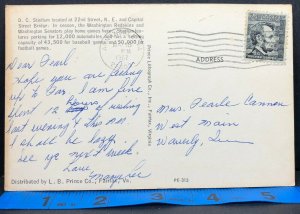 D. C. Stadium located at 22nd Street, N. E. and Capital
Street Bridge. In season, the Washington Redskins and
Washington Senators play home games here. Ample
parking for 12,000 automobiles and has a seating
capacity of 43,500 for baseball games and 50,000 in
football games.
Dear Pearl
Hope you are feeling
up to Par. I am fine
spent 12 hours of visiting
last evening & this am.
I shall be happy.
See ya next week.
Love
Distributed by L. B. Prince Co., Fairfax, Va.
ADDRESS
Mrs. Pearle Cannon
West Main
Waverly, Tenn
PE-313
1 2 3 4 5